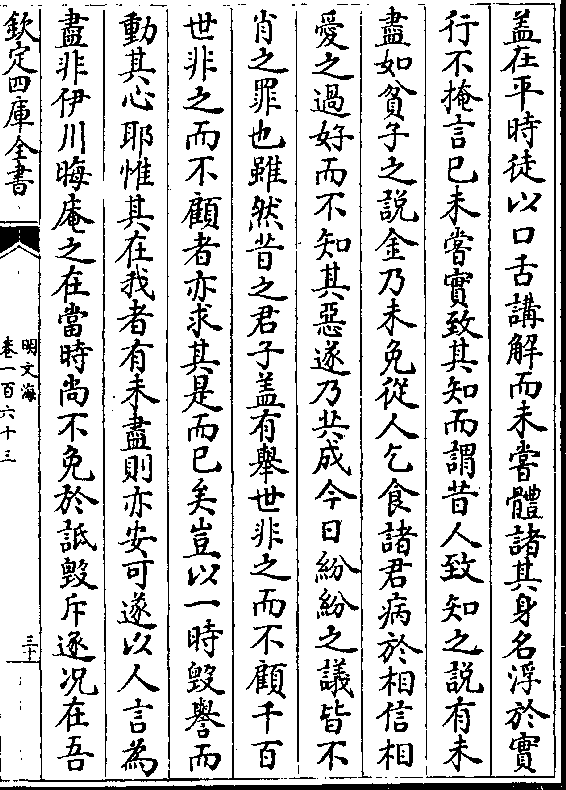 盖在平時徒以口舌講解而未嘗體諸其身名浮於實
行不掩言已未嘗實致其知而謂昔人致知之說有未
盡如貧子之說金乃未免從人乞食諸君病於相信相
愛之過好而不知其惡遂乃共成今日紛紛之議皆不
肖之罪也雖然昔之君子盖有舉世非之而不顧千百
世非之而不顧者亦求其是而已矣豈以一時毀譽而
動其心耶惟其在我者有未盡則亦安可遂以人言為
盡非伊川晦庵之在當時尚不免於詆毀斥逐况在吾
欽定四庫全書
明文海
卷一百六十三
三十